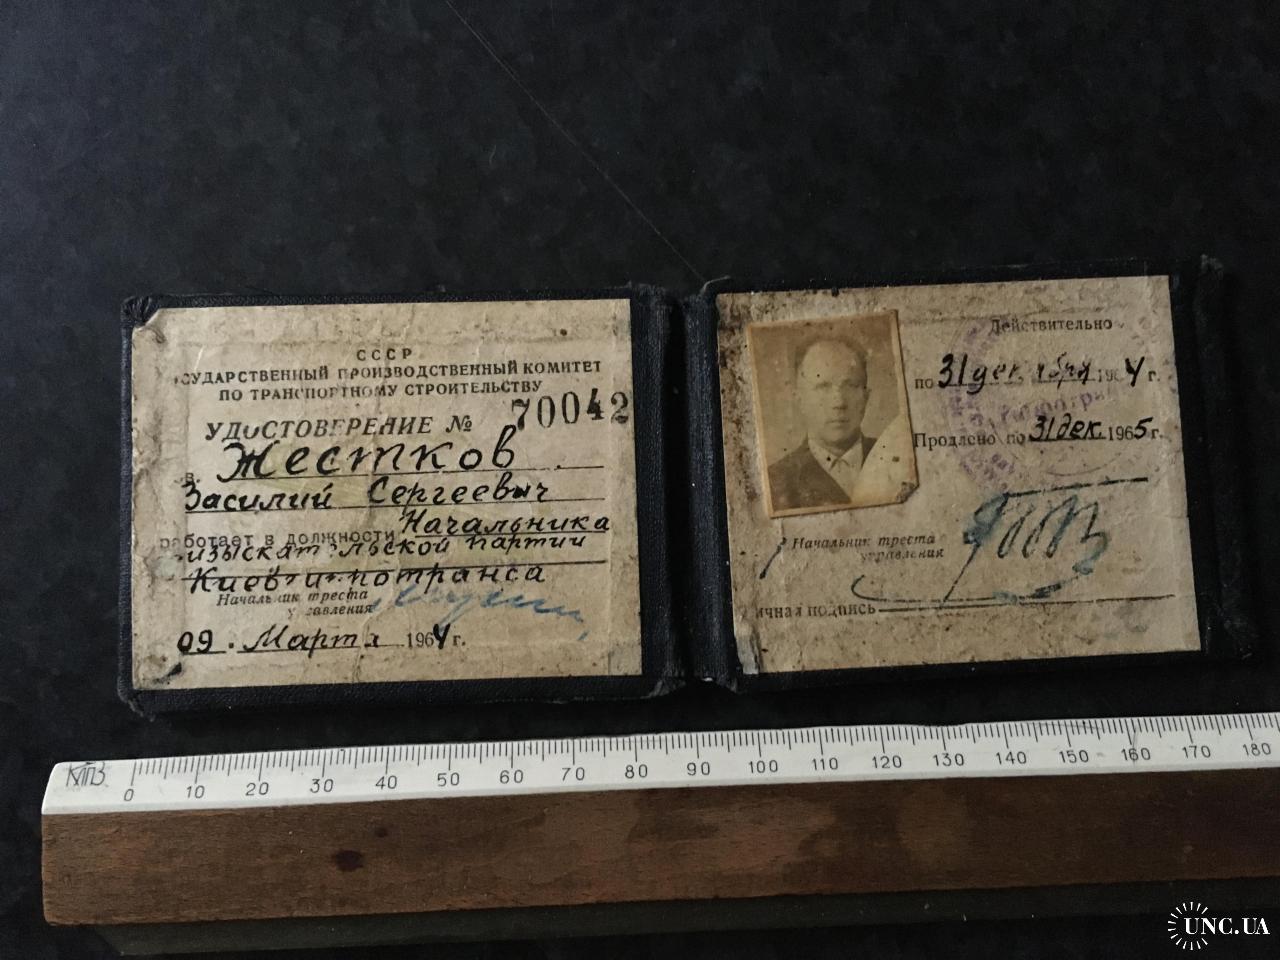 СССР
СУДАРСТВЕННЫЙ ПРОИЗВОДСТВЕННЫЙ КОМИТЕТ
ПО ТРАНСПОРТНОМУ СТРОИТЕЛЬСТВУ
УДОСТОВЕРЕНИЕ № 70042
в. Жестков
Василий Сергеевич
работает в должности Начальника
изыскательской партии
Киевгипротранса
Начальник треста
управления
09. Марта 1964 г.
Действительно
по 31 декабря 1964 г.
Продлено по 31 дек. 1965 г.
Начальник треста
управления
ичная подпись
КПЗ
0 10 20 30 40 50 60 70 80 90 100 110 120 130 140 150 160 170 180
UNC.UA